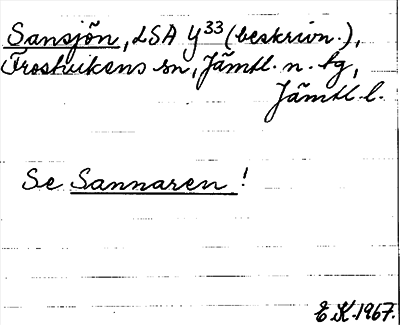 Sansjön, LSA y33 (beskrivn.),
Frostvikens sn, Jämtl. n. fg,
Jämtl. l.
Se Sannaren!
E K. 1967.